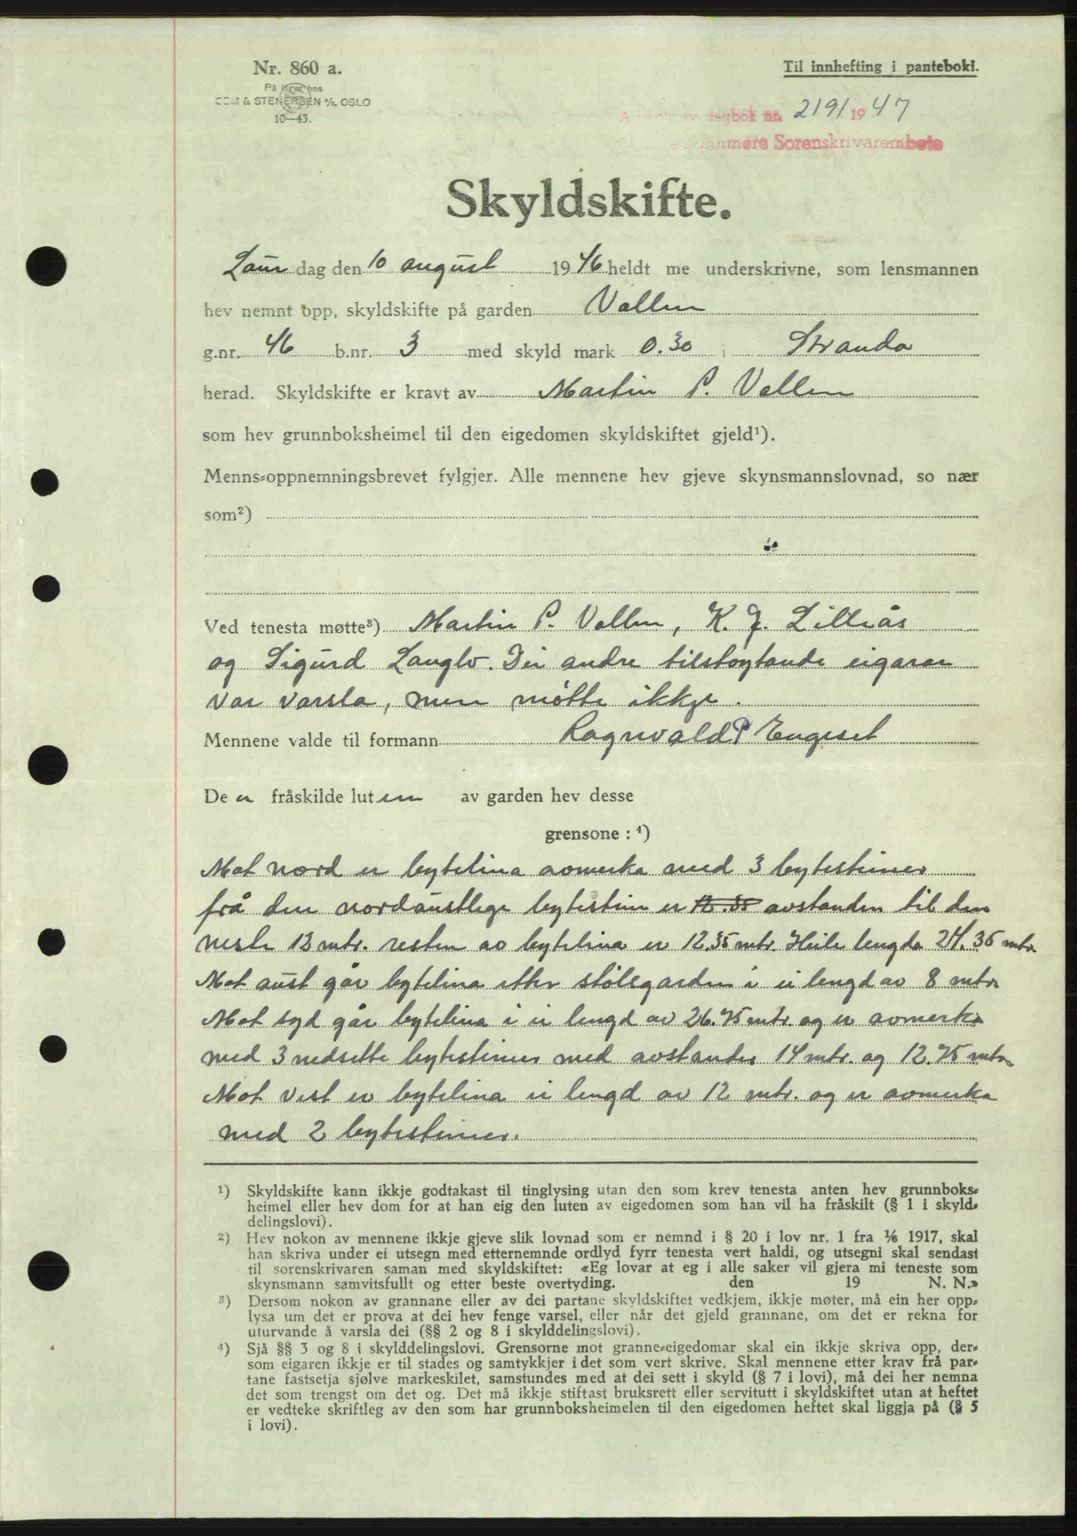 Nr. 860 a.
Til innhefting i pantebok.
På lager hos
SEM & STENERSEN A/S, OSLO
10—43.
dagbok nr. 2191 1947
nnmøre Sorenskrivarembete
Skyldskifte.
Laur dag den 10 august 1946 heldt me underskrivne, som lensmannen
hev nemnt opp, skyldskifte på garden Vallen
g.nr. 46 b.nr. 3 med skyld mark 0.30 i Stranda
herad. Skyldskifte er kravt av Martin P. Vallen
som hev grunnboksheimel til den eigedomen skyldskiftet gjeld¹).
Menns-oppnemningsbrevet fylgjer. Alle mennene hev gjeve skynsmannslovnad, so nær
som²)
Ved tenesta møtte³) Martin P. Vallen, K. J. Lillås
og Sigurd Langlo. Dei andre tilstøytande eigarar
var varsla, men møtte ikkje.
Mennene valde til formann Ragnvald P Engeset
De n fråskilde luten av garden hev desse
grensone : ⁴)
Mot nord er bytelina avmerka med 3 bytesteiner
frå den nordaustlege bytestein er 12.35 avstanden til den
neste 12 mtr. resten av bytelina er 12.35 mtr. Heile lengda 24.35 mtr
Mot aust går bytelina etter stølsgarden i ei lengd av 8 mtr.
Mot syd går bytelina i ei lengd av 26.75 mtr. og er avmerka
med 3 nedsette bytesteiner med avstandar 14 mtr. og 12.75 mtr.
Mot vest er bytelina ei lengd av 12 mtr. og er avmerka
med 2 bytesteiner.
¹) Skyldskifte kann ikkje godtakast til tinglysing utan den som krev tenesta anten hev grunnboks-
heimel eller hev dom for at han eig den luten av eigedomen som han vil ha fråskilt (§ 1 i skyld-
delingslovi).
²) Hev nokon av mennene ikkje gjeve slik lovnad som er nemnd i § 20 i lov nr. 1 fra 1/6 1917, skal
han skriva under ei utsegn med etternemnde ordlyd fyrr tenesta vert haldi, og utsegni skal sendast
til sorenskrivaren saman med skyldskiftet: «Eg lovar at eg i alle saker vil gjera mi teneste som
skynsmann samvitsfullt og etter beste overtyding. den 19 N. N.»
³) Dersom nokon av grannane eller av dei partane skyldskiftet vedkjem, ikkje møter, må ein her opp-
lysa um det er prova at dei hev fenge varsel, eller når det gjeld grannane, om det er rekna for
uturvande å varsla dei (§§ 2 og 8 i skylddelingslovi).
⁴) Sjå §§ 3 og 8 i skylddelingslovi. Grensorne mot granne-eigedomar skal ein ikkje skriva opp, der-
som eigaren ikkje er til stades og samtykkjer i det som vert skrive. Skal mennene etter krav frå par-
tane fastsetja sjølve markeskilet, samstundes med at dei sett i skyld (§ 7 i lovi), må dei her nemna
det som trengst om det og. Det må ikkje stiftast bruksrett eller servitutt i skyldskiftet utan at heftet
er vedteke skriftleg av den som har grunnboksheimelen til den eigedomen heftet skal liggja på (§ 5
i lovi).